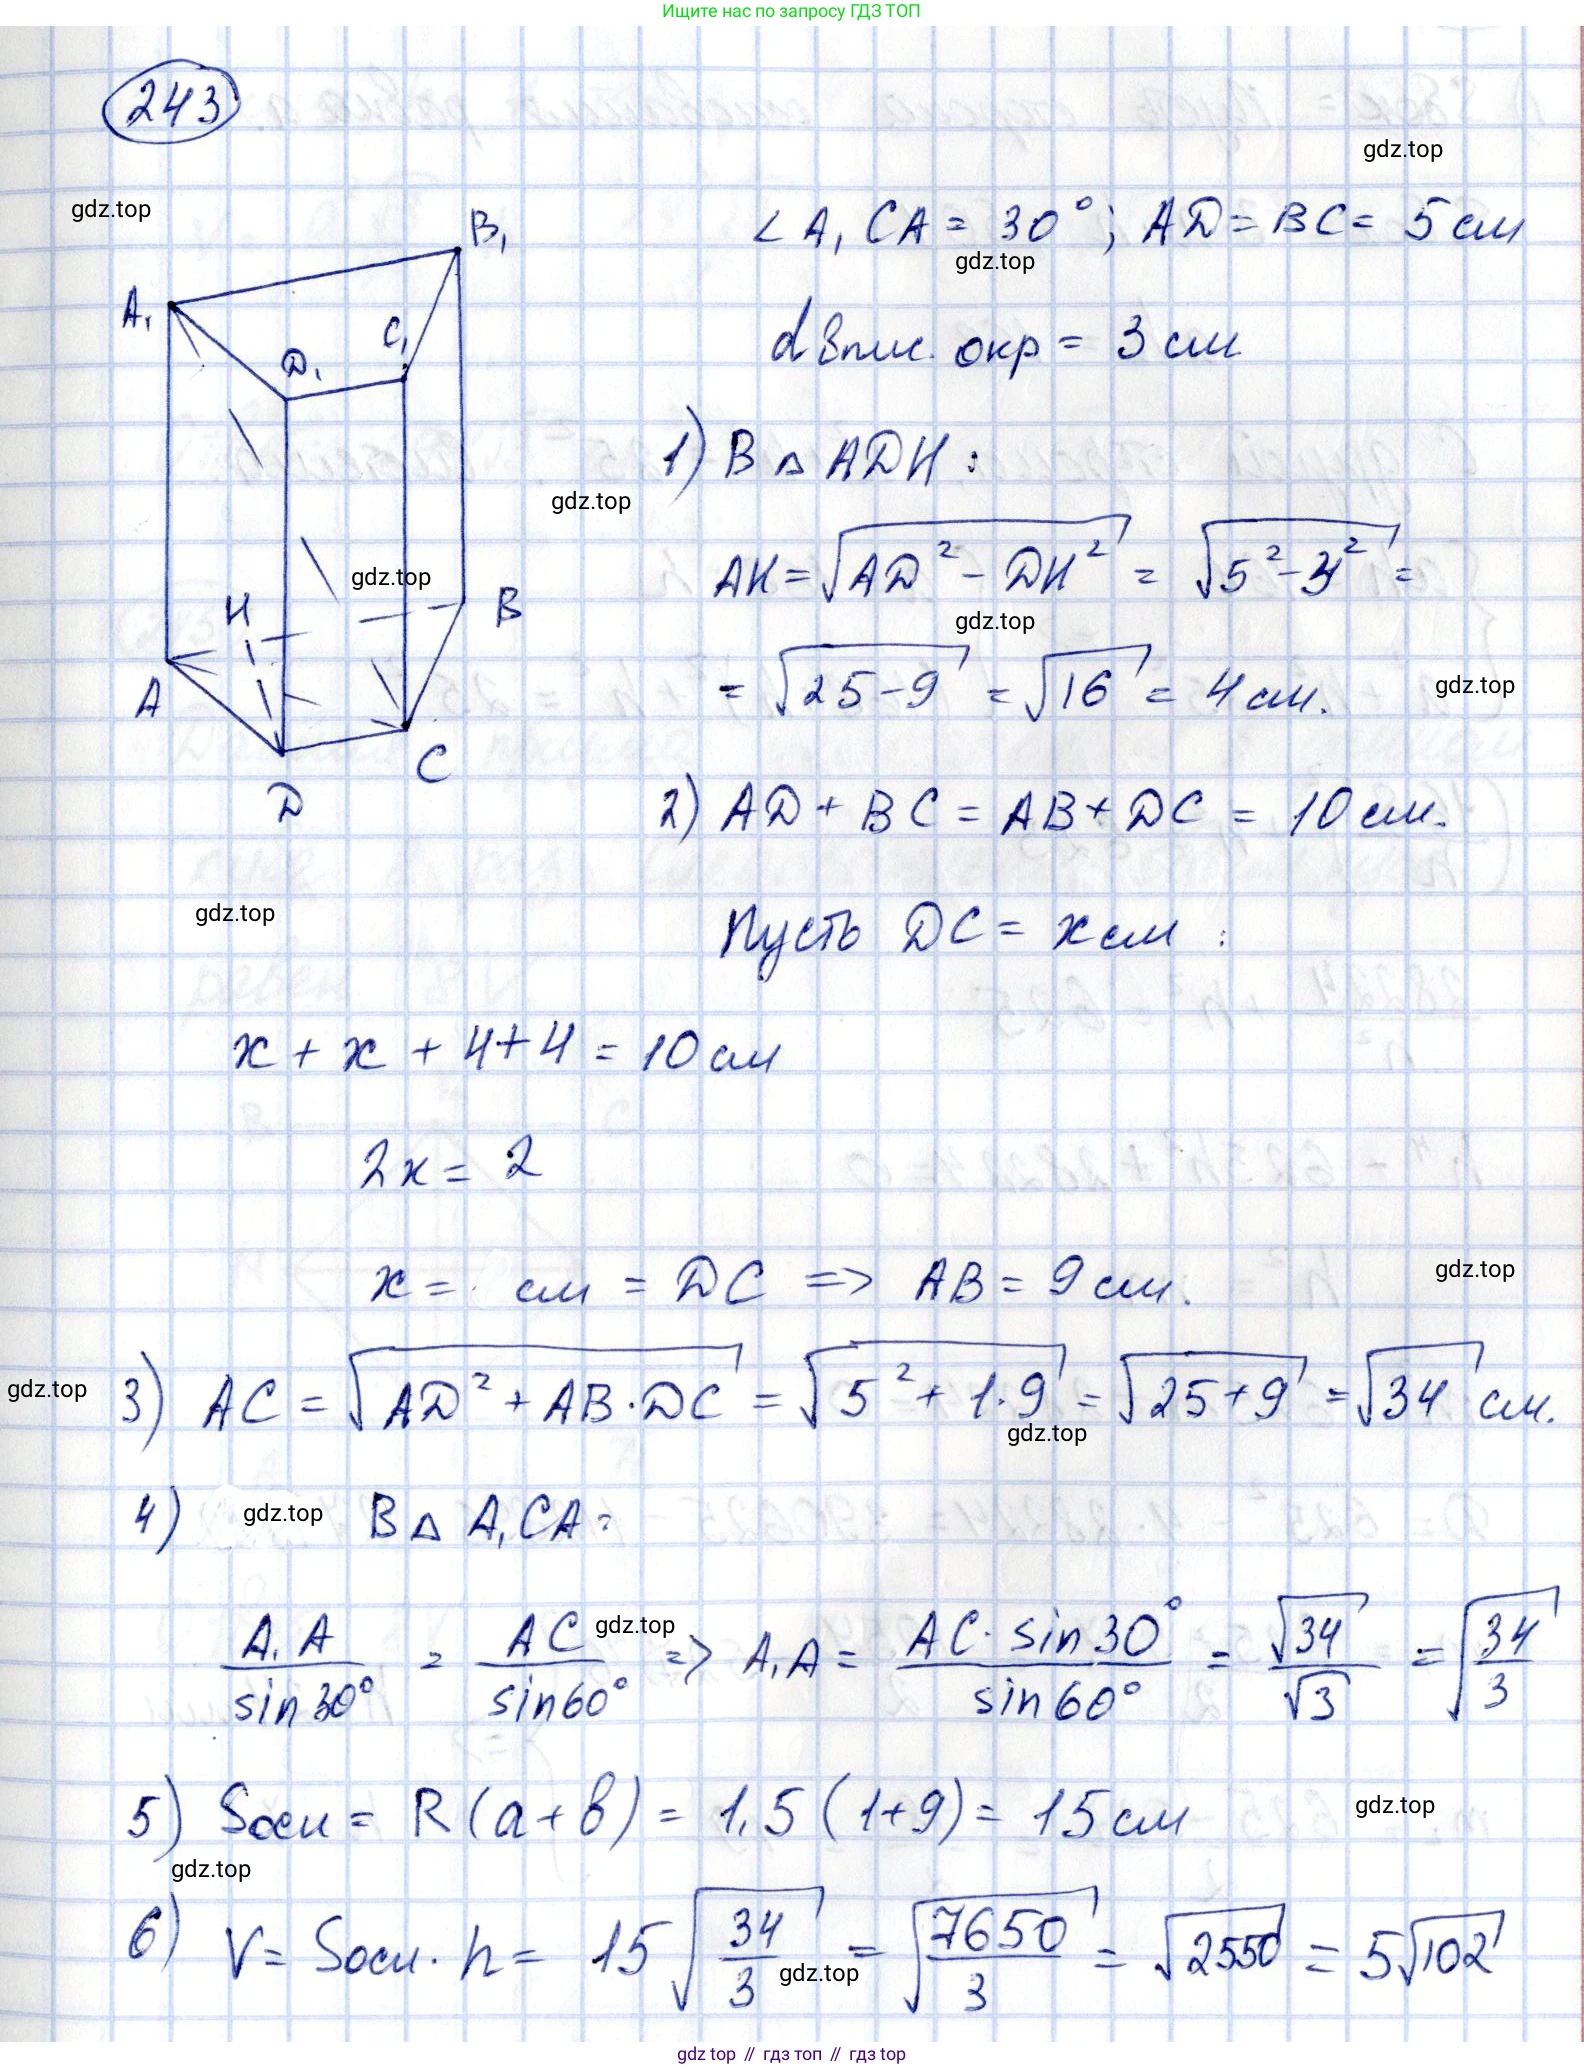 Ищите нас по запросу ГДЗ ТОП
243
gdz.top
gdz.top
∠A₁CA = 30°; AD = BC = 5 см
gdz.top
B₁
A₁
C₁
D₁
d впис. окр = 3 см
1) В △ ADH :
gdz.top
AH = √(AD² - DH²) = √(5² - 3²) =
gdz.top
gdz.top
H
B
= √(25 - 9) = √16 = 4 см.
gdz.top
A
C
D
2) AD + BC = AB + DC = 10 см.
gdz.top
Пусть DC = x см :
x + x + 4 + 4 = 10 см
2x = 2
x = см = DC => AB = 9 см.
gdz.top
gdz.top
3) AC = √(AD² + AB · DC) = √(5² + 1 · 9) = √(25 + 9) = √34 см.
gdz.top
4) gdz.top В △ A₁CA:
A₁A / sin 30° = AC / sin 60° => A₁A = AC · sin 30° / sin 60° = √34 / √3 = √(34/3)
gdz.top
5) Sосн = R (a + b) = 1,5 (1 + 9) = 15 см
gdz.top
gdz.top
6) V = Sосн · h = 15 √(34/3) = √(7650/3) = √2550 = 5√102
gdz.top
gdz top // гдз топ // гдз top